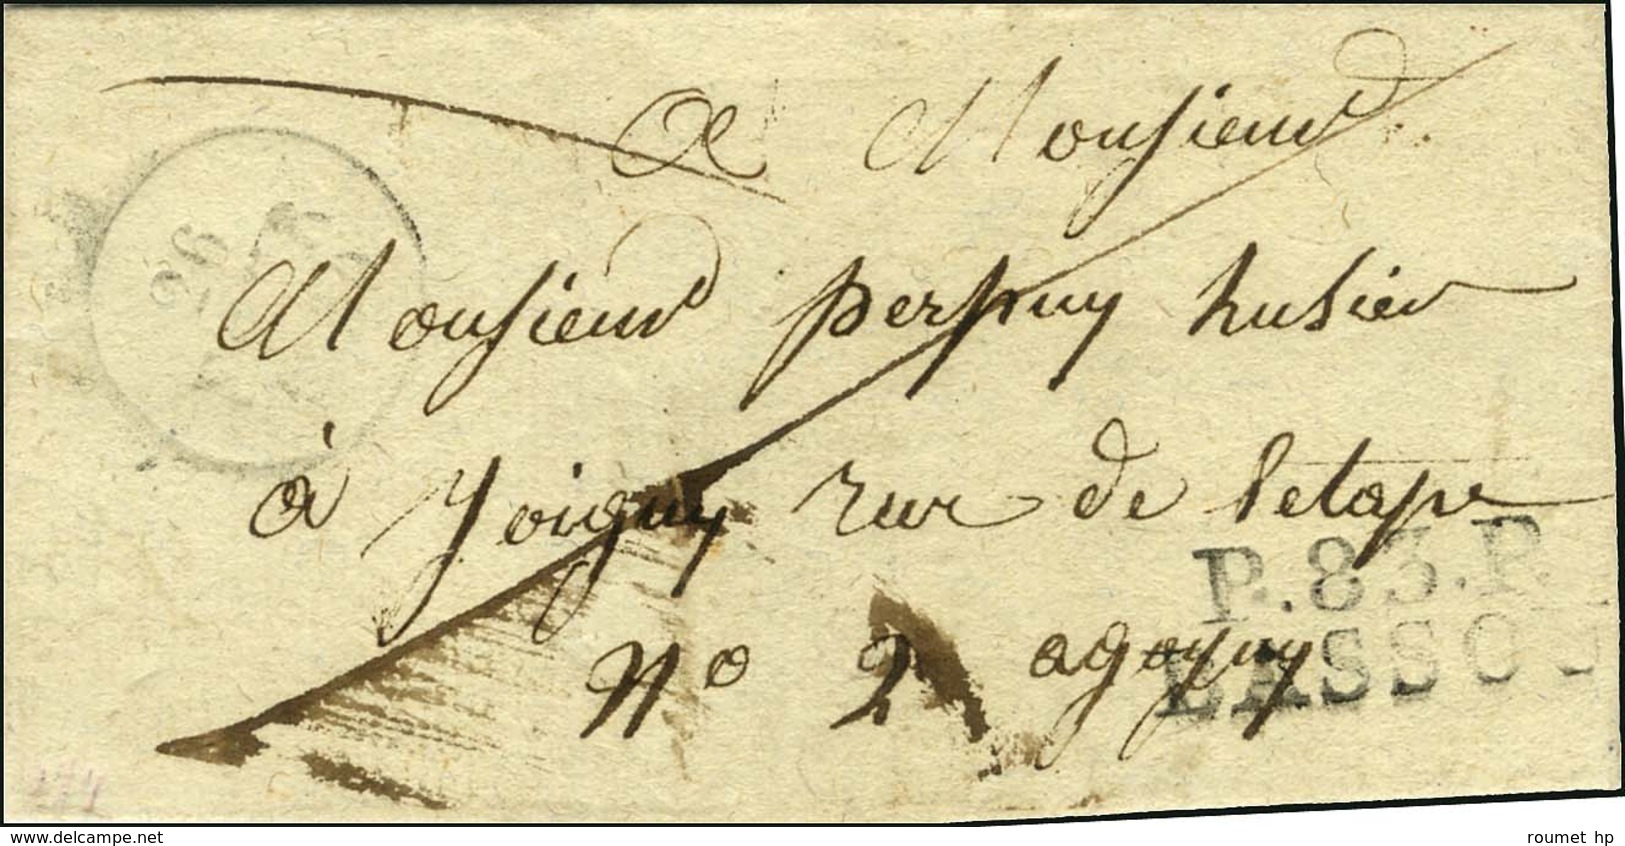 A Monsieur
Monsieur perpuy husier
à Joiguy rue de letape
N° 2 a goyuy
P.83.P.
BASSOU
26
www.delcampe.net
roumet hp